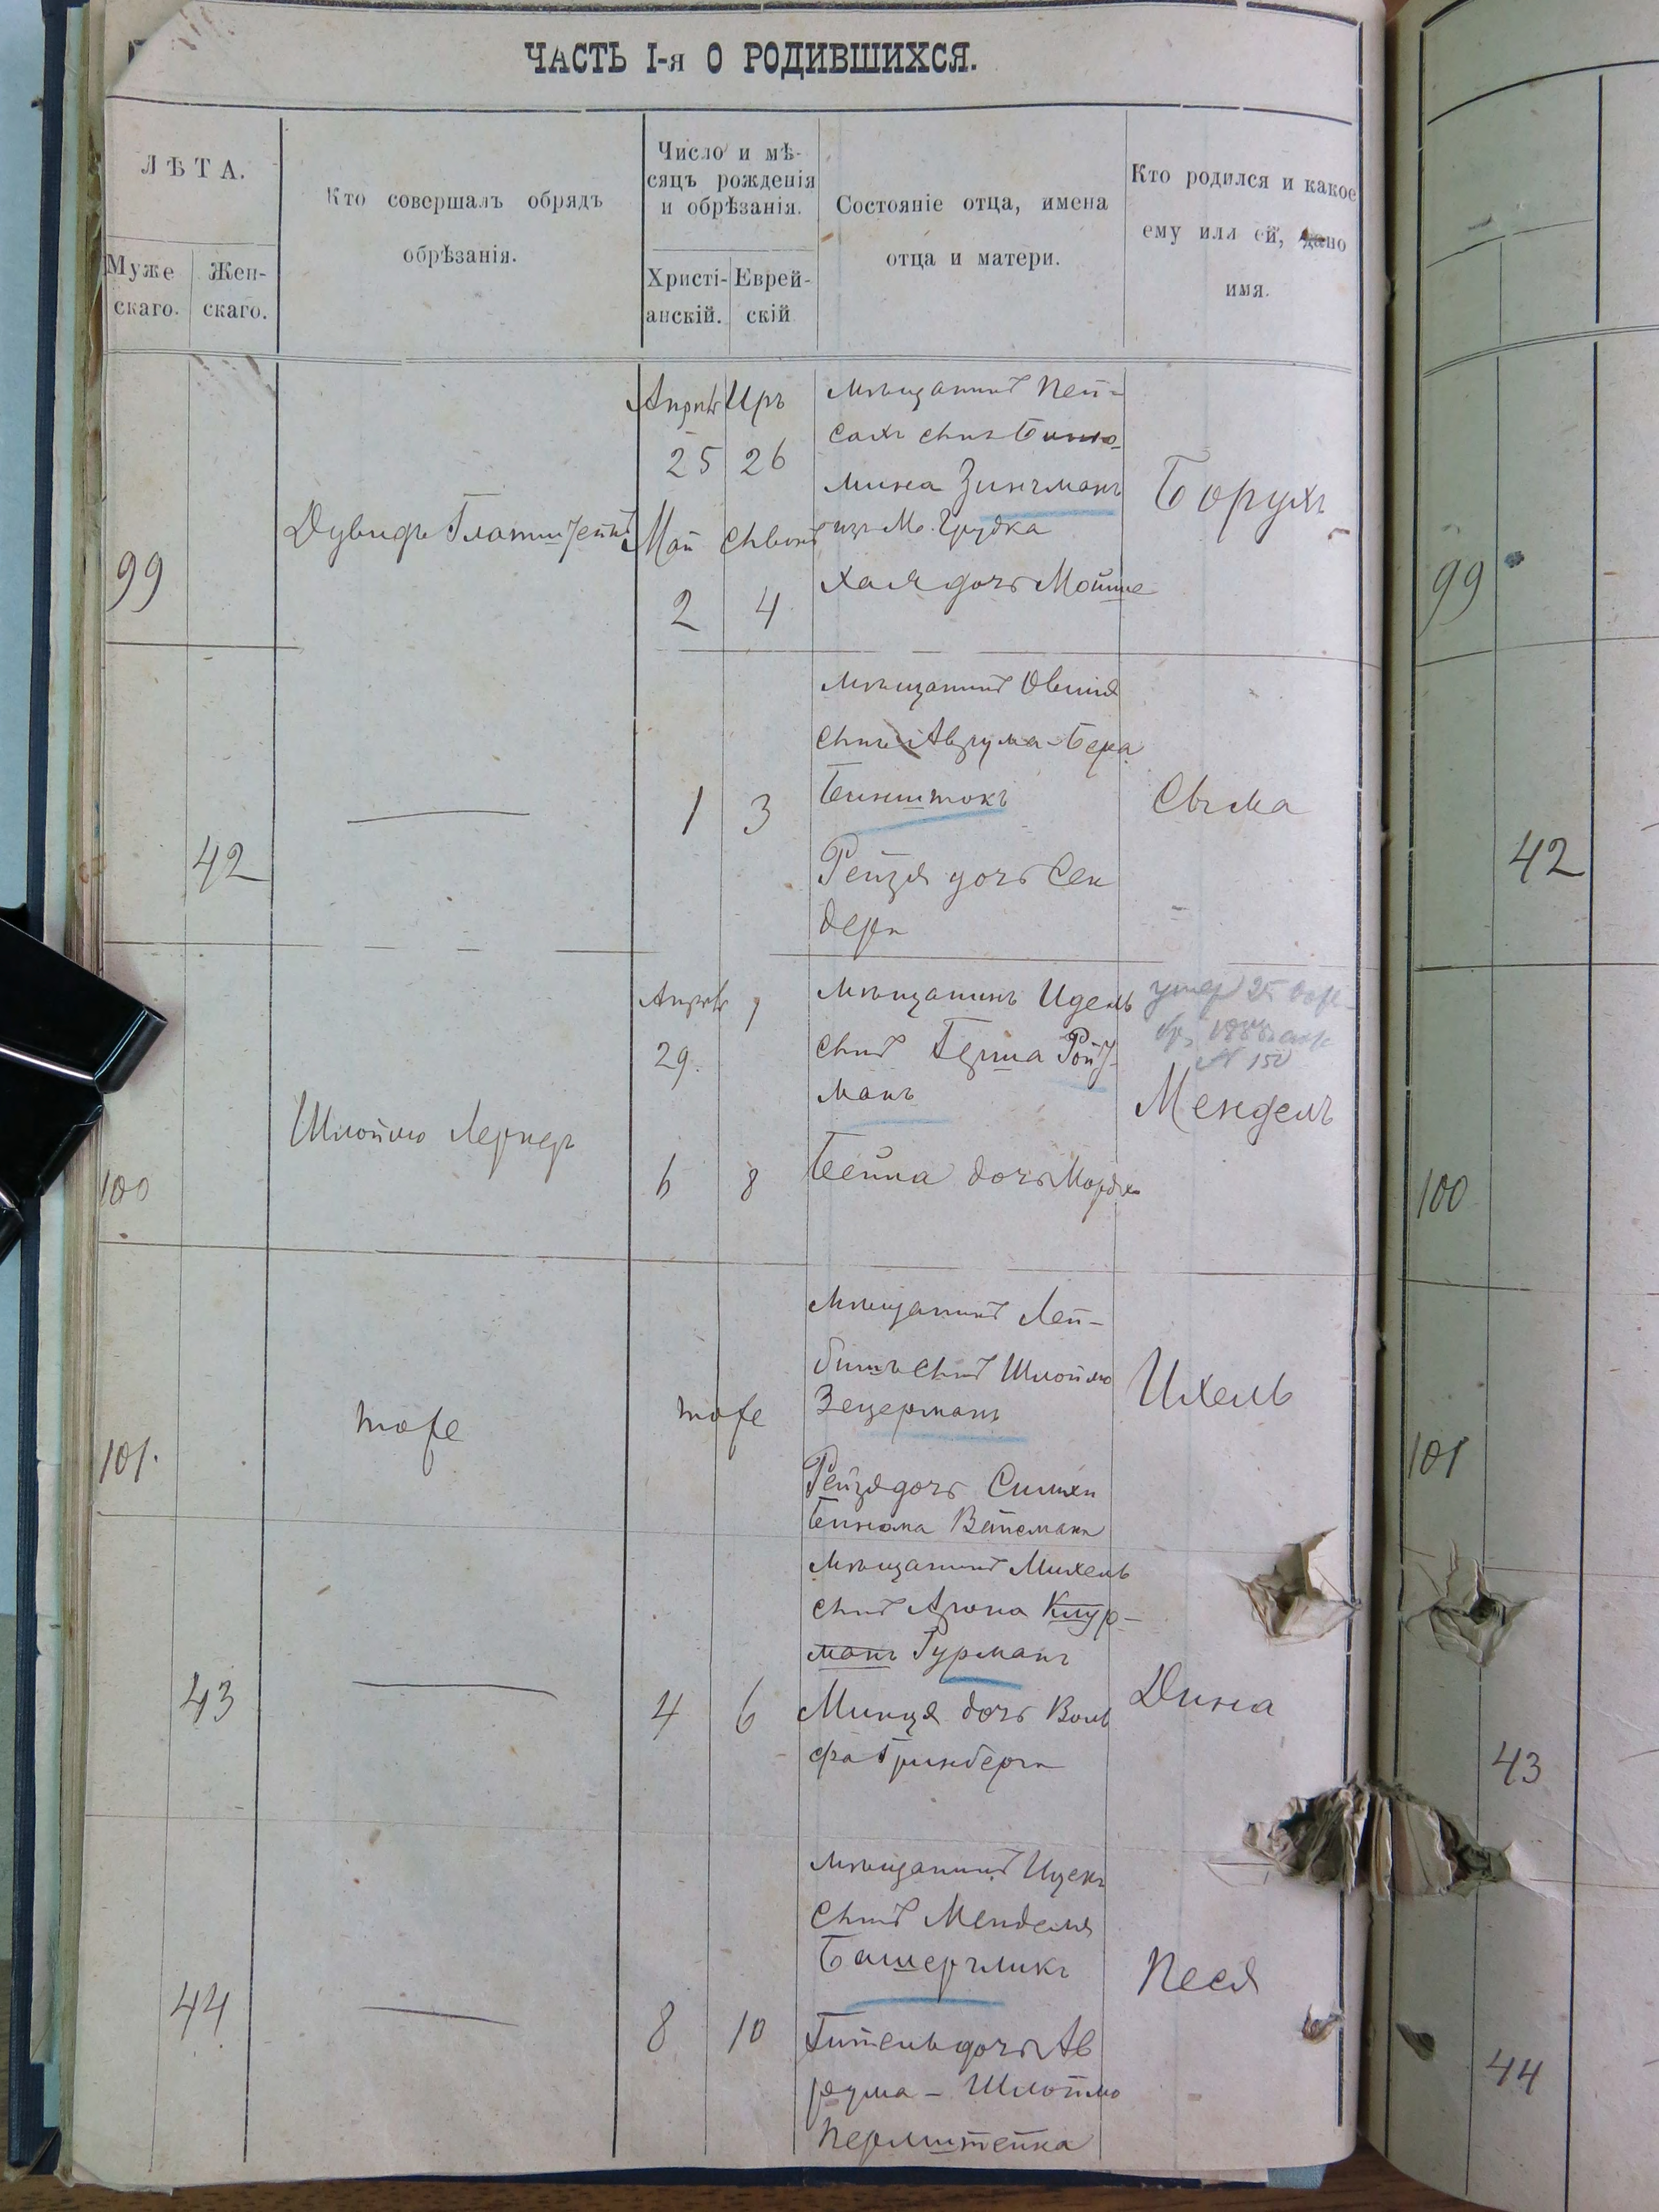 ЧАСТЬ I-я О РОДИВШИХСЯ.
ЛѢТА.
Муже
скаго.
Жен-
скаго.
Кто совершалъ обрядъ
обрѣзанія.
Число и мѣ-
сяцъ рожденія
и обрѣзанія.
Христі-
анскій.
Еврей-
скій
Состояніе отца, имена
отца и матери.
Кто родился и какое
ему или ей, дано
имя.
99
Дувидъ
Апрѣль Иръ
25 26
Май Сывонъ
2 4
Мѣщанинъ Пей-
сахъ сынъ Биню-
мина Зингманъ
изъ м. Грудка
Хая дочь Мойше
Борухъ
99
42
1 3
Мѣщанинъ Овшія
сынъ Аврума-Бера
Бинштокъ
Рейзя дочь Сен
дера
Сыма
42
100
Шлоймо Лернеръ
Апрѣль 1
29.
6 8
Мѣщанинъ Идель
сынъ Герша Ройз-
манъ
Бейла дочь Мордко
умер 25
№ 150
Мендель
100
101.
тоже
тоже
Мѣщанинъ Лей-
бишъ сынъ Шлоймо
Зецерманъ
Рейзя дочь Симхи
Бинома Вайсмана
Ихель
101
43
4 6
Мѣщанинъ Михель
сынъ Арона Клур-
манъ Гурманъ
Минця дочь Воль
фа Гринберга
Дина
43
44
8 10
Мѣщанинъ Ицекъ
сынъ Менделя
Башерчликъ
Гитель дочь Ав
рума - Шлоймо
Перлштейна
Песя
44